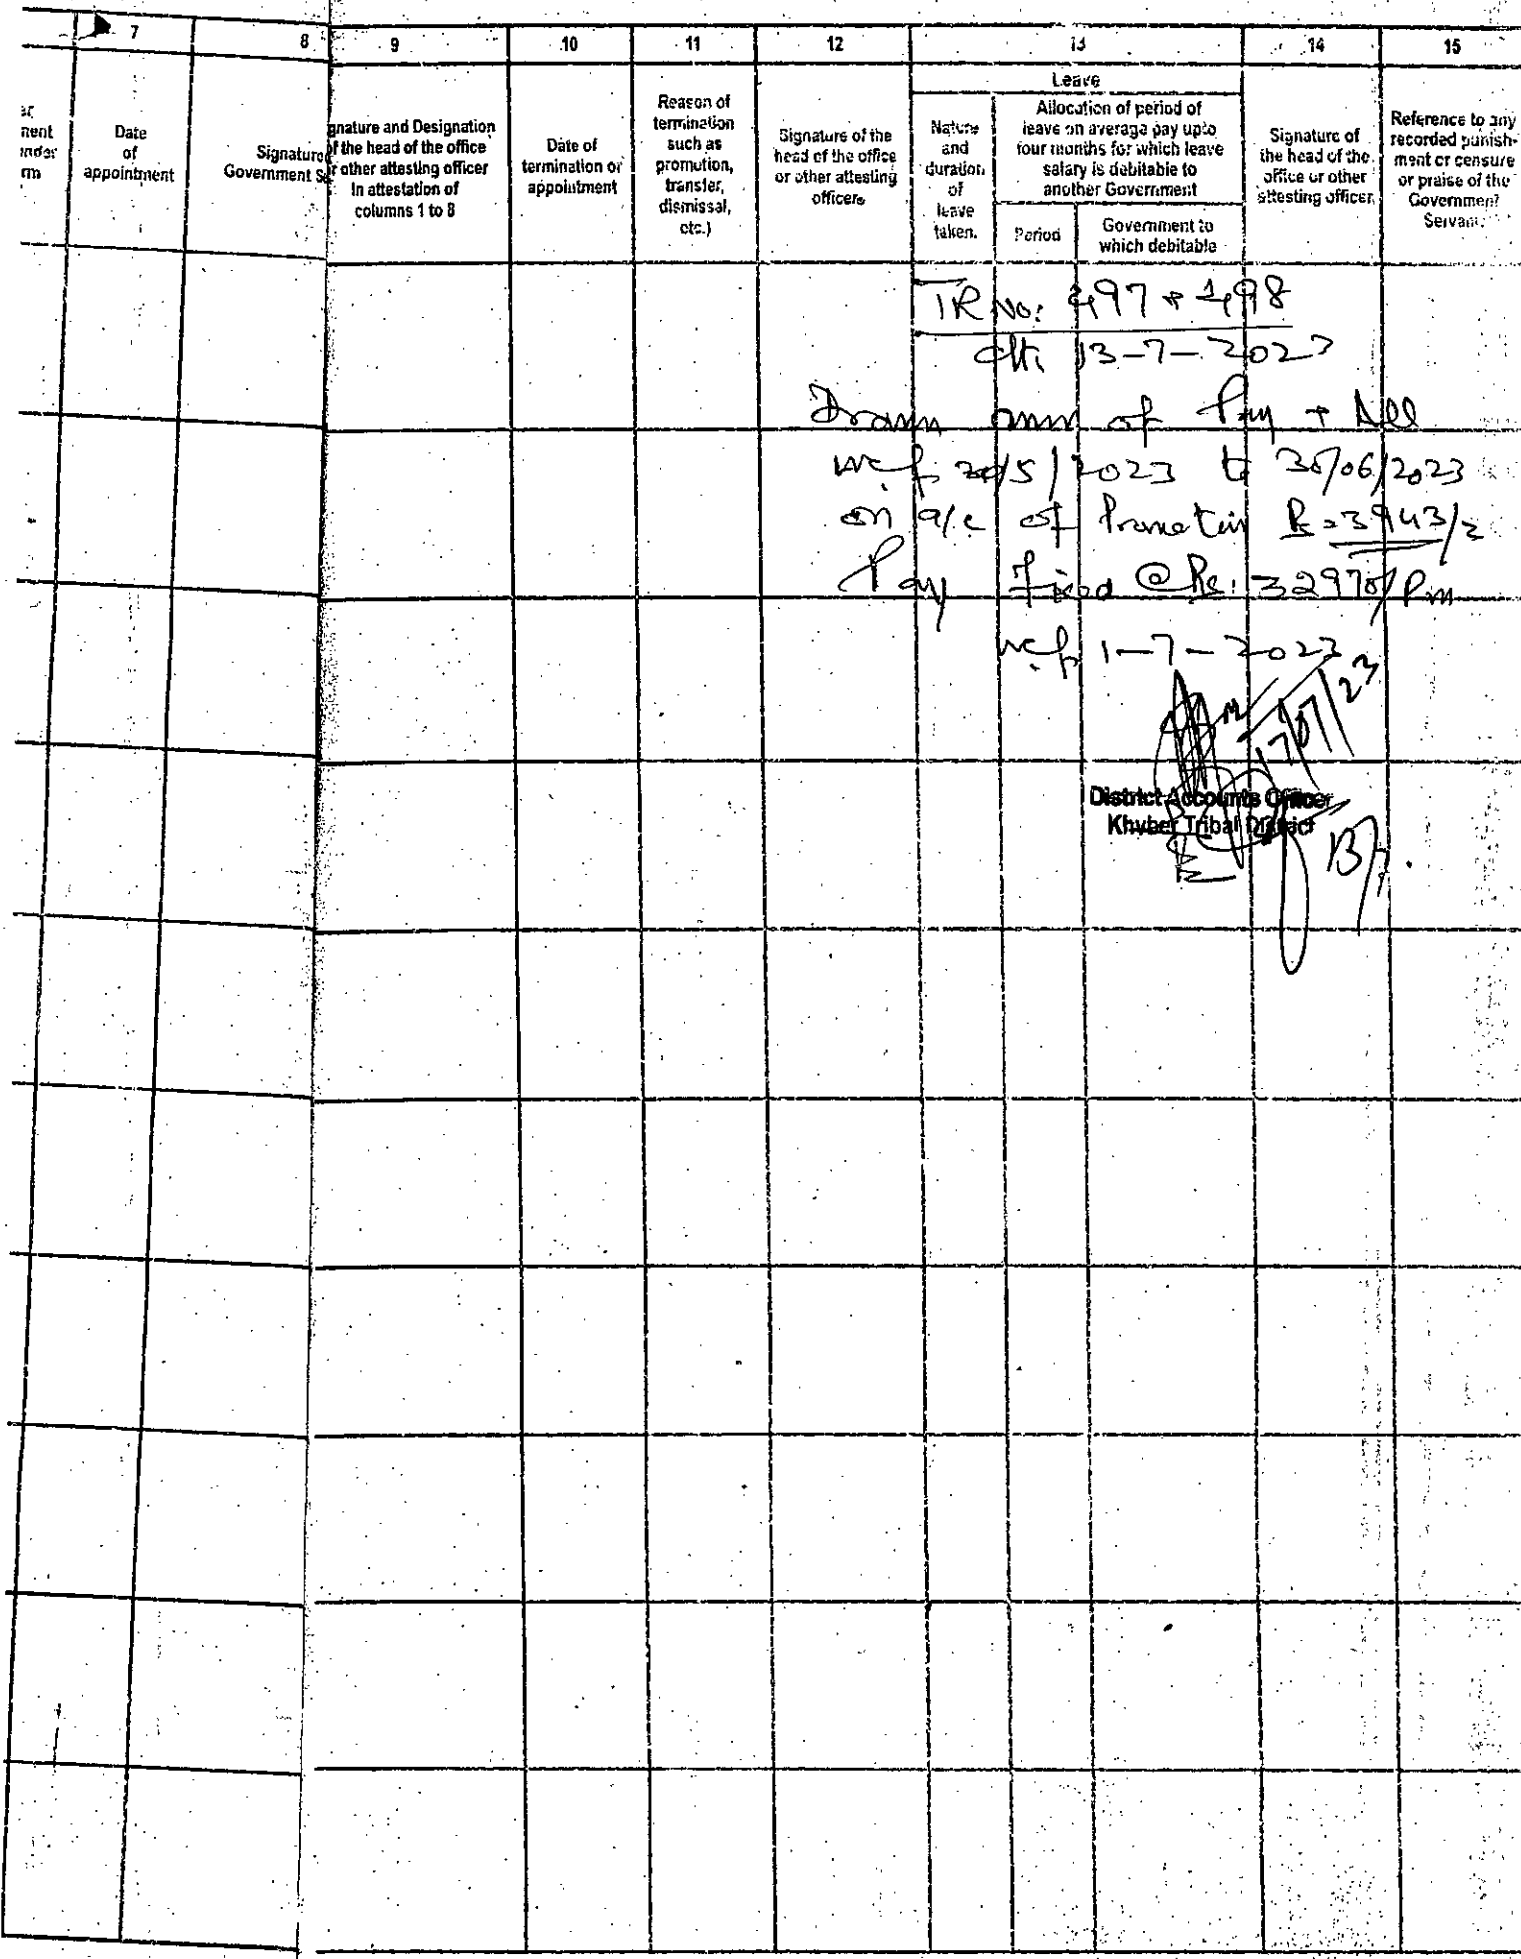 7 8 9 10 11 12 13 14 15
nent
under
rm
Date
of
appointment
Signature
Government Se
gnature and Designation
of the head of the office
r other attesting officer
In attestation of
columns 1 to 8
Date of
termination or
appointment
Reason of
termination
such as
promotion,
transfer,
dismissal,
etc.)
Signature of the
head of the office
or other attesting
officers
Leave
Nature
and
duration
of
leave
taken.
Allocation of period of
leave on average pay upto
four months for which leave
salary is debitable to
another Government
Period
Government to
which debitable
Signature of
the head of the
office or other
attesting officer
Reference to any
recorded punish-
ment or censure
or praise of the
Government
Servant.
TR No: 497 + 498
dt. 13-7-2023
Drawn of Pay + All
wef 20/5/2023 to 30/06/2023
on a/c of Promotion Rs=3943/=
Pay Fixed @ Rs: 32970/Pm
wef 1-7-2023
17/07/23
District Accounts Officer
Khyber Tribal District
13/7.